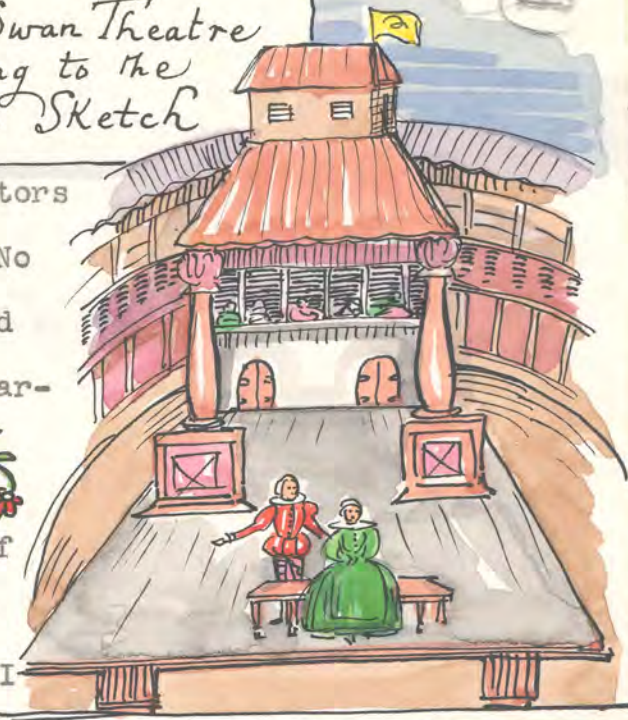 Swan Theatre
ng to the
Sketch
tors
No
d
ar-
f
I